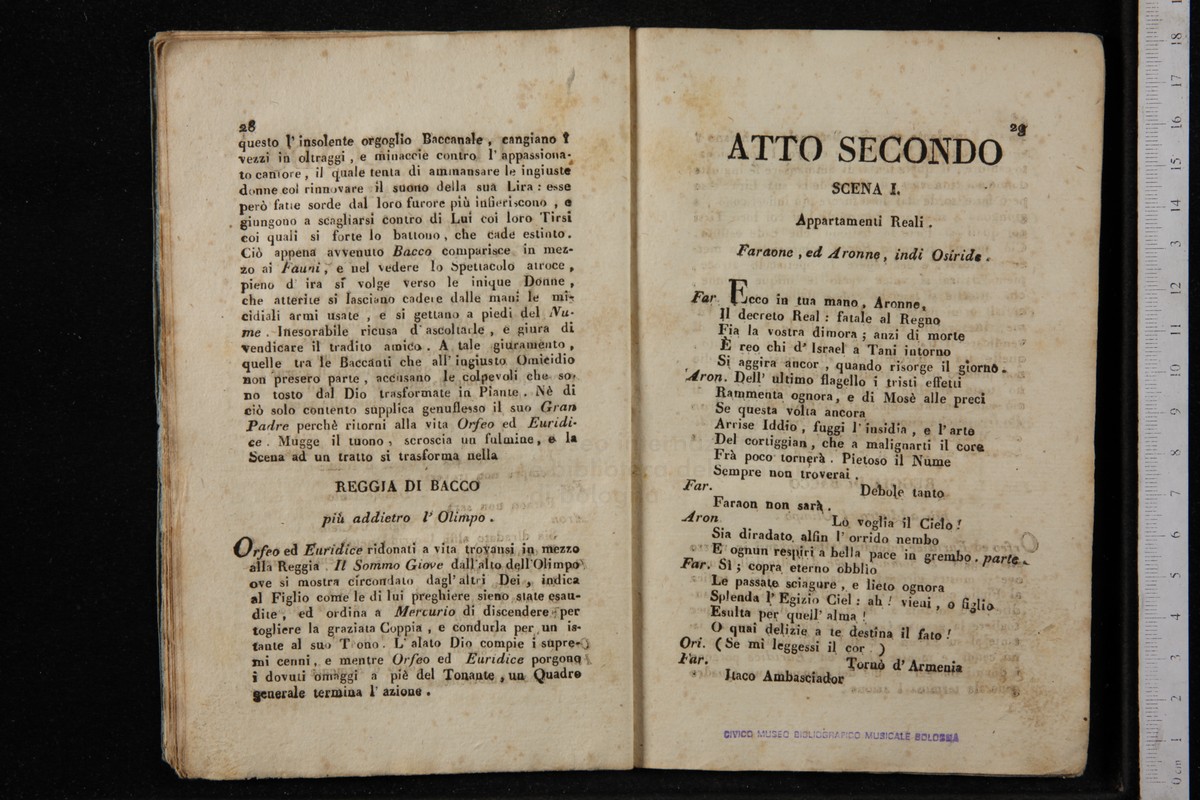 28
questo l' insolente orgoglio Baccanale , cangiano i
vezzi in oltraggi , e minaccie contro l' appassiona-
to cantore , il quale tenta di ammansare le ingiuste
donne col rinnovare il suono della sua Lira : esse
però fatte sorde dal loro furore più infieriscono , e
giungono a scagliarsi contro di Lui coi loro Tirsi
coi quali si forte lo battono , che cade estinto .
Ciò appena avvenuto Bacco comparisce in mez-
zo ai Fauni , e nel vedere lo Spettacolo atroce ,
pieno d' ira si volge verso le inique Donne ,
che atterite si lasciano cadere dalle mani le mi-
cidiali armi usate , e si gettano a piedi del Nu-
me . Inesorabile ricusa d' ascoltarle , e giura di
vendicare il tradito amico . A tale giuramento ,
quelle tra le Baccanti che all' ingiusto Omicidio
non presero parte , accusano le colpevoli che so-
no tosto dal Dio trasformate in Piante . Nè di
ciò solo contento supplica genuflesso il suo Gran
Padre perchè ritorni alla vita Orfeo ed Euridi-
ce . Mugge il tuono , scroscia un fulmine , e la
Scena ad un tratto si trasforma nella
REGGIA DI BACCO
più addietro l' Olimpo .
Orfeo ed Euridice ridonati a vita trovansi in mezzo
alla Reggia . Il Sommo Giove dall'alto dell'Olimpo
ove si mostra circondato dagl' altri Dei , indica
al Figlio come le di lui preghiere sieno state esau-
dite , ed ordina a Mercurio di discendere per
togliere la graziata Coppia , e condurla per un is-
tante al suo Trono . L' alato Dio compie i supre-
mi cenni , e mentre Orfeo ed Euridice porgono
i dovuti omaggi a piè del Tonante , un Quadro
generale termina l' azione .
29
ATTO SECONDO
SCENA I.
Appartamenti Reali .
Faraone , ed Aronne , indi Osiride .
Far. Ecco in tua mano , Aronne ,
Il decreto Real : fatale al Regno
Fia la vostra dimora ; anzi di morte
È reo chi d' Israel a Tani intorno
Si aggira ancor , quando risorge il giorno .
Aron. Dell' ultimo flagello i tristi effetti
Rammenta ognora , e di Mosè alle preci
Se questa volta ancora
Arrise Iddio , fuggi l' insidia , e l'arte
Del cortiggian , che a malignarti il core
Frà poco tornerà . Pietoso il Nume
Sempre non troverai .
Far. Debole tanto
Faraon non sarà .
Aron Lo voglia il Cielo !
Sia diradato alfin l' orrido nembo
E ognun respiri a bella pace in grembo . parte
Far. Sì ; copra eterno obblio
Le passate sciagure , e lieto ognora
Splenda l' Egizio Ciel : ah ! vieni , o figlio
Esulta per quell' alma !
O quai delizie a te destina il fato !
Ori. ( Se mi leggessi il cor . )
Far. Tornò d' Armenia
Itaco Ambasciador
CIVICO MUSEO BIBLIOGRAFICO MUSICALE BOLOGNA